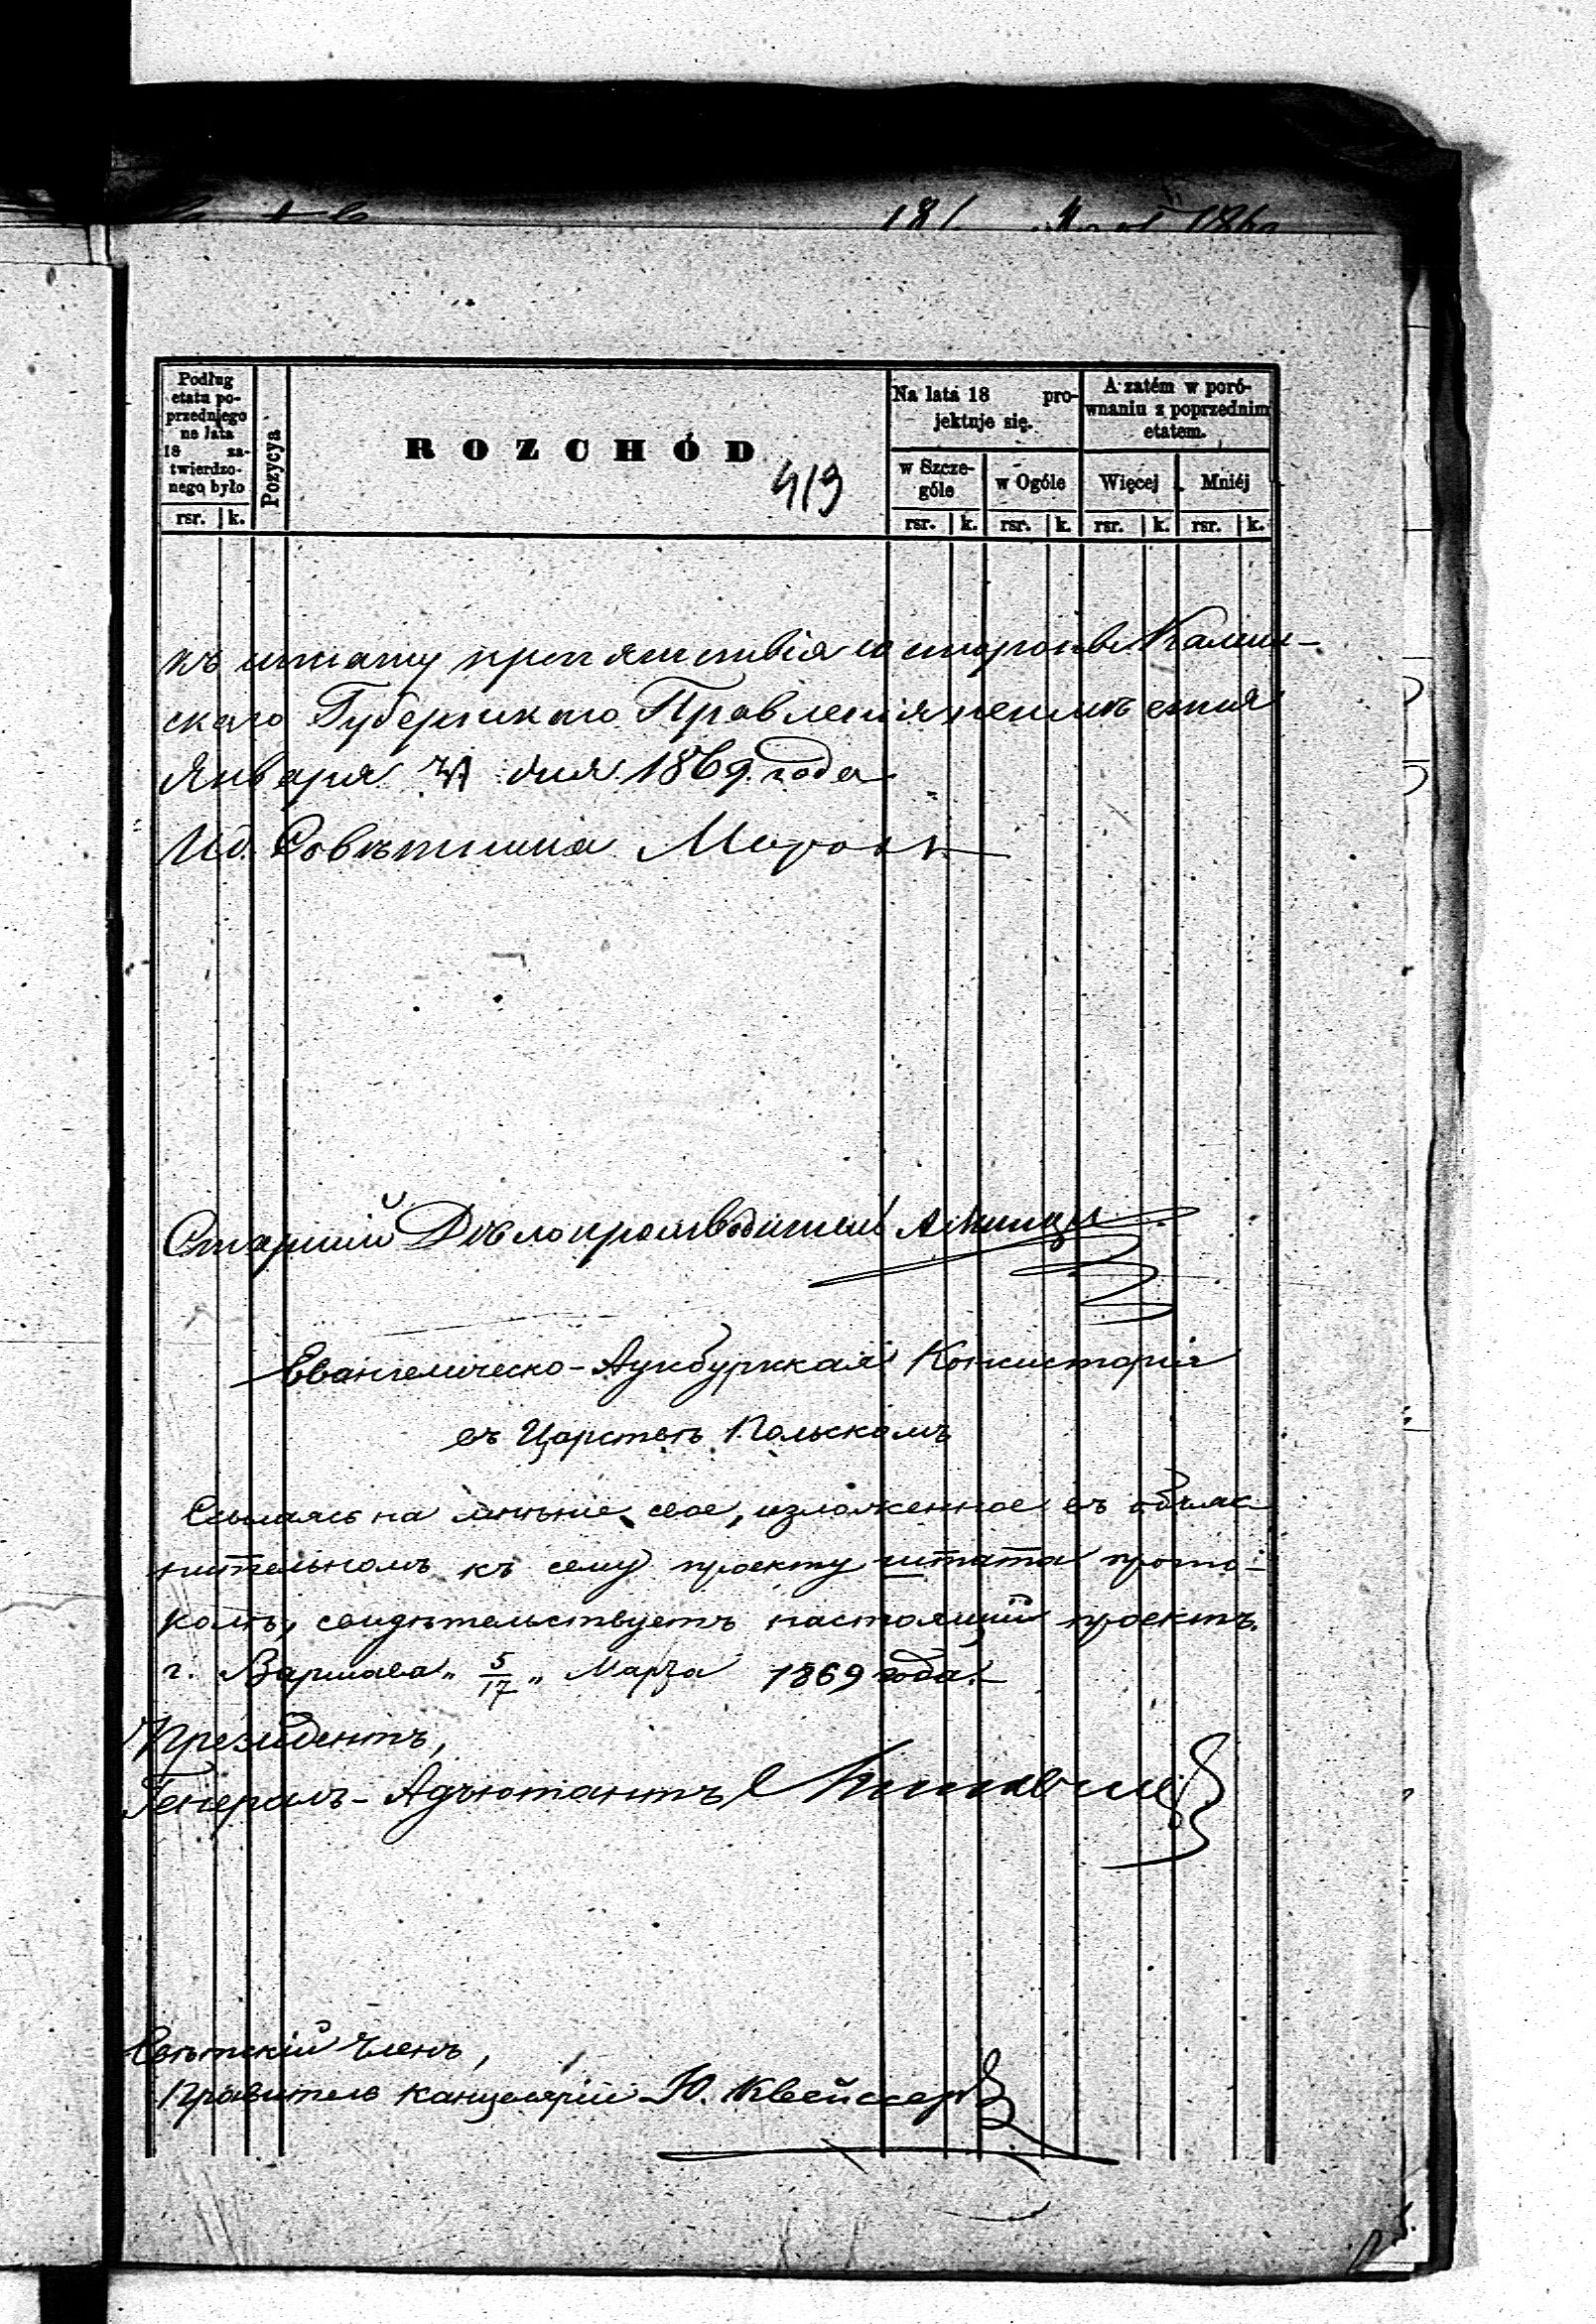 Podług
etatu po-
przedniego
na lata
18 za-
twierdzo-
nego było
rsr. k.
Pozycya
ROZCHÓD
419
Na lata 18 pro-
jektuje się.
w Szcze-
góle
w Ogóle
rsr. k. rsr. k.
A zatém w poró-
wnaniu z poprzednim
etatem.
Więcej Mniéj
rsr. k. rsr. k.
къ штату препятствія со стороны Калиш-
скаго Губернскаго Правленія
Января дня 1869 года
Ид. Совѣтника
Старшій Дѣлопроизводитель
Евангелическо-Аугсбургская Консисторія
въ Царствѣ Польскомъ
Ссылаясь на мнѣніе свое, изложенное въ объяс-
нительномъ къ сему проекту штата прото-
колѣ, свидѣтельствуетъ настоящій проектъ.
г. Варшава „ 5/17 „ Марта 1869 года.
Президентъ,
Генералъ-Адъютантъ
Свѣтскій Членъ,
Правитель Канцеляріи Ю. Квейссеръ